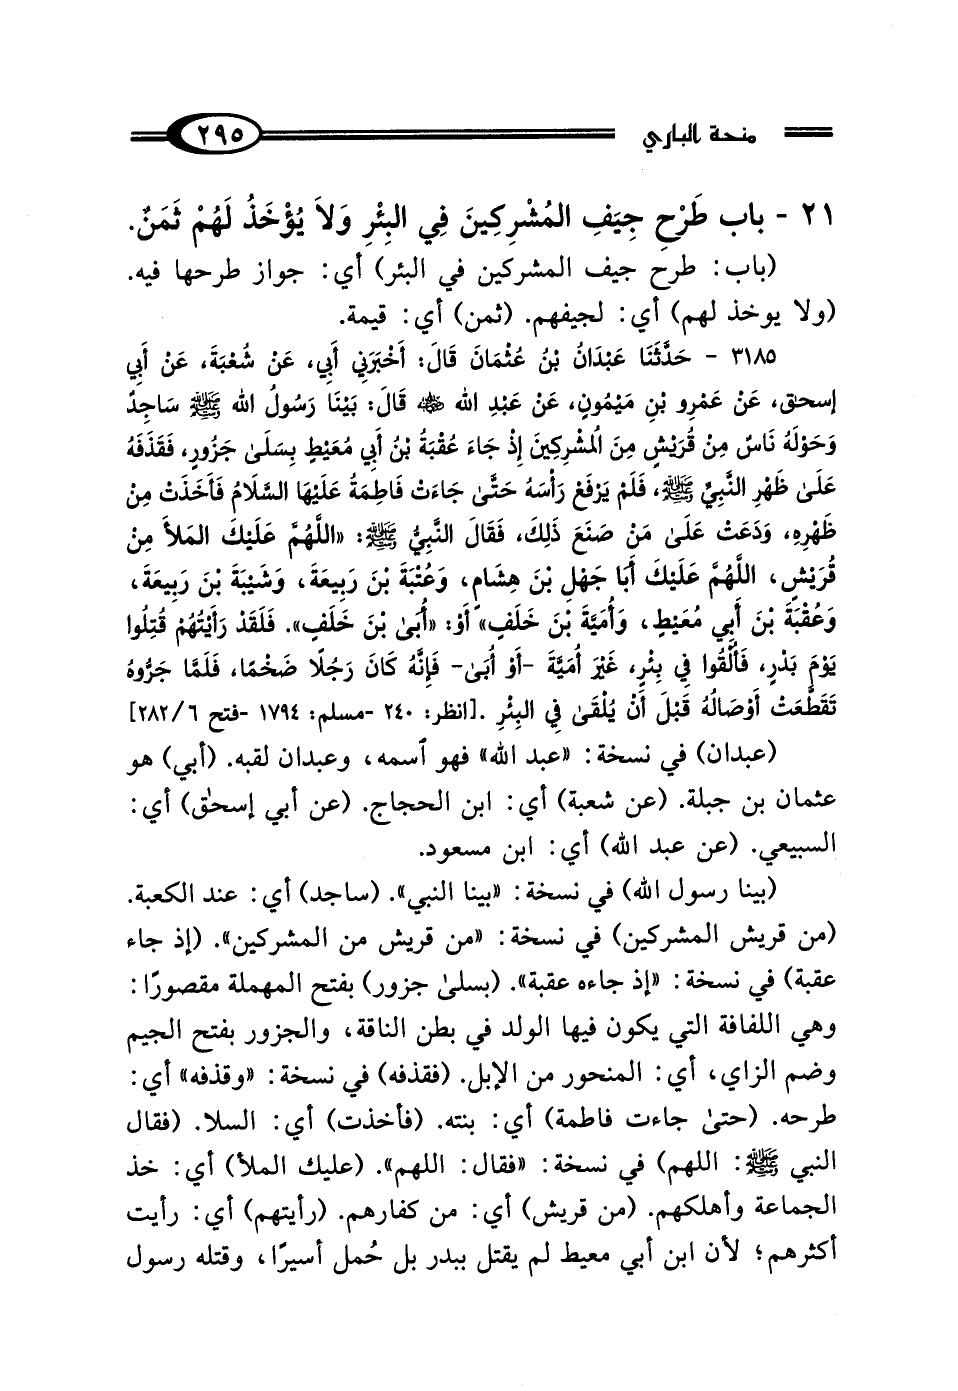 منحة الباري
٢٩٥
٢١ - باب طَرْحِ جِيَفِ المُشْرِكِينَ فِي البِئْرِ وَلاَ يُؤْخَذُ لَهُمْ ثَمَنٌ.
(باب: طرح جيف المشركين في البئر) أي: جواز طرحها فيه.
(ولا يوخذ لهم) أي: لجيفهم. (ثمن) أي: قيمة.
٣١٨٥ - حَدَّثَنَا عَبْدَانُ بْنُ عُثْمَانَ قَالَ: أَخْبَرَنِي أَبِي، عَنْ شُعْبَةَ، عَنْ أَبِي
إسحق، عَنْ عَمْرِو بْنِ مَيْمُونٍ، عَنْ عَبْدِ الله ﷺ قَالَ: بَيْنَا رَسُولُ الله ﷺ سَاجِدٌ
وَحَوْلَهُ نَاسٌ مِنْ قُرَيْشٍ مِنَ المُشْرِكِينَ إِذْ جَاءَ عُقْبَةُ بْنُ أَبِي مُعَيْطٍ بِسَلَىٰ جَزُورٍ، فَقَذَفَهُ
عَلَىٰ ظَهْرِ النَّبِيِّ ﷺ، فَلَمْ يَرْفَعْ رَأْسَهُ حَتَّىٰ جَاءَتْ فَاطِمَةُ عَلَيْهَا السَّلَامُ فَأَخَذَتْ مِنْ
ظَهْرِهِ، وَدَعَتْ عَلَىٰ مَنْ صَنَعَ ذَلِكَ، فَقَالَ النَّبِيُّ ﷺ: «اللَّهُمَّ عَلَيْكَ المَلأَ مِنْ
قُرَيْشٍ، اللَّهُمَّ عَلَيْكَ أَبَا جَهْلِ بْنَ هِشَامٍ، وَعُتْبَةَ بْنَ رَبِيعَةَ، وَشَيْبَةَ بْنَ رَبِيعَةَ،
وَعُقْبَةَ بْنَ أَبِي مُعَيْطٍ، وَأُمَيَّةَ بْنَ خَلَفٍ» أَوْ: «أُبَىٰ بْنَ خَلَفٍ». فَلَقَدْ رَأَيْتُهُمْ قُتِلُوا
يَوْمَ بَدْرٍ، فَأُلْقُوا فِي بِئْرٍ، غَيْرَ أُمَيَّةَ -أَوْ أُبَىٰ- فَإِنَّهُ كَانَ رَجُلًا ضَخْمًا، فَلَمَّا جَرُّوهُ
تَقَطَّعَتْ أَوْصَالُهُ قَبْلَ أَنْ يُلْقَىٰ فِي البِئْرِ .[انظر: ٢٤٠ -مسلم: ١٧٩٤ -فتح ٢٨٢/٦]
(عبدان) في نسخة: «عبد الله» فهو ٱسمه، وعبدان لقبه. (أبي) هو
عثمان بن جبلة. (عن شعبة) أي: ابن الحجاج. (عن أبي إسحٰق) أي:
السبيعي. (عن عبد الله) أي: ابن مسعود.
(بينا رسول الله) في نسخة: «بينا النبي». (ساجد) أي: عند الكعبة.
(من قريش المشركين) في نسخة: «من قريش من المشركين». (إذ جاء
عقبة) في نسخة: «إذ جاءه عقبة». (بسلىٰ جزور) بفتح المهملة مقصورًا:
وهي اللفافة التي يكون فيها الولد في بطن الناقة، والجزور بفتح الجيم
وضم الزاي، أي: المنحور من الإبل. (فقذفه) في نسخة: «وقذفه» أي:
طرحه. (حتىٰ جاءت فاطمة) أي: بنته. (فأخذت) أي: السلا. (فقال
النبي ﷺ: اللهم) في نسخة: «فقال: اللهم». (عليك الملأ) أي: خذ
الجماعة وأهلكهم. (من قريش) أي: من كفارهم. (رأيتهم) أي: رأيت
أكثرهم؛ لأن ابن أبي معيط لم يقتل ببدر بل حُمل أسيرًا، وقتله رسول